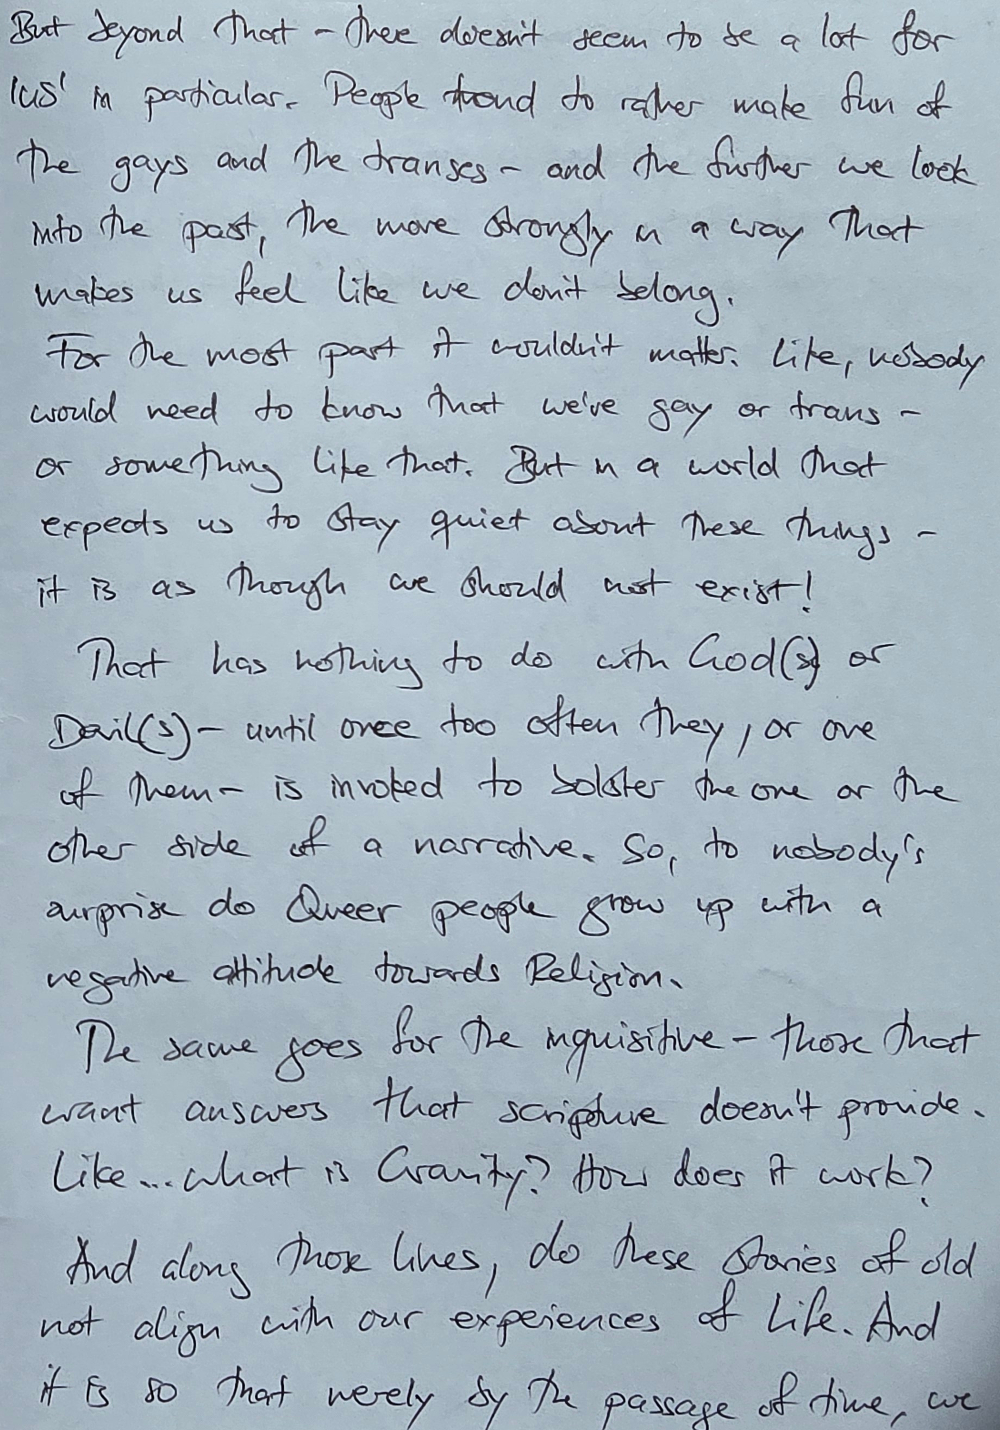 But beyond that - there doesn't seem to be a lot for
'us' in particular. People tend to rather make fun of
the gays and the transes - and the further we look
into the past, the more strongly in a way that
makes us feel like we don't belong.
For the most part it wouldn't matter. Like, nobody
would need to know that we're gay or trans -
or something like that. But in a world that
expects us to stay quiet about these things -
it is as though we should not exist!
That has nothing to do with God(s) or
Devil(s) - until once too often they, or one
of them - is invoked to bolster the one or the
other side of a narrative. So, to nobody's
surprise do Queer people grow up with a
negative attitude towards Religion.
The same goes for the inquisitive - those that
want answers that scripture doesn't provide.
Like... what is Gravity? How does it work?
And along those lines, do these stories of old
not align with our experiences of Life. And
it is so that merely by the passage of time, we